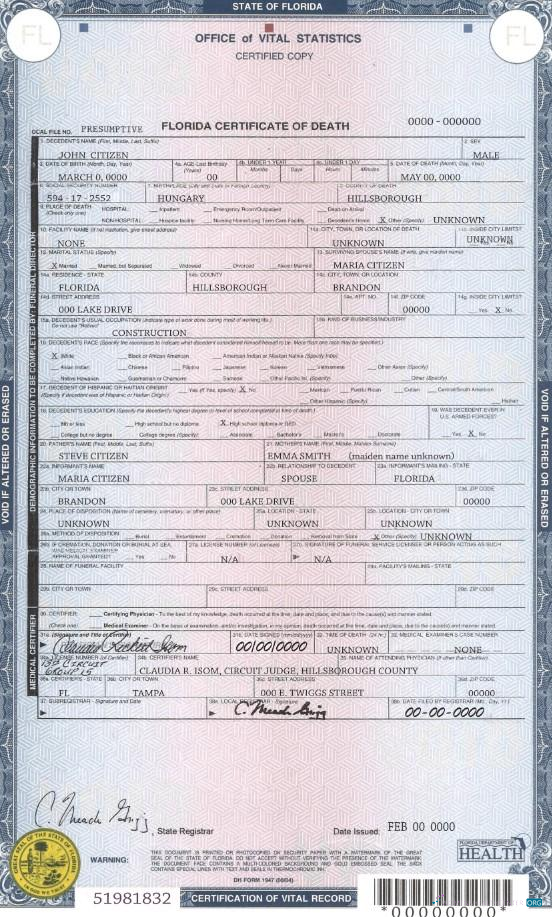 STATE OF FLORIDA
FL
FL
OFFICE of VITAL STATISTICS
CERTIFIED COPY
0000 - 000000
OCAL FILE NO. PRESUMPTIVE FLORIDA CERTIFICATE OF DEATH
1. DECEDENT'S NAME (First, Middle, Last, Suffix) 2. SEX
JOHN CITIZEN MALE
3. DATE OF BIRTH (Month, Day, Year) 4a. AGE-Last Birthday (Years) 4b. UNDER 1 YEAR Months Days 4c. UNDER 1 DAY Hours Minutes 5. DATE OF DEATH (Month, Day, Year)
MARCH 0, 0000 00 MAY 00, 0000
6. SOCIAL SECURITY NUMBER 7. BIRTHPLACE (City and State or Foreign Country) 8. COUNTY OF DEATH
594 - 17 - 2552 HUNGARY HILLSBOROUGH
9. PLACE OF DEATH (Check only one) HOSPITAL: Inpatient Emergency Room/Outpatient Dead on Arrival
NON-HOSPITAL: Hospice facility Nursing Home/Long Term Care Facility Decedent's Home X Other (Specify) UNKNOWN
10. FACILITY NAME (If not institution, give street address) 11a. CITY, TOWN, OR LOCATION OF DEATH 11b. INSIDE CITY LIMITS?
NONE UNKNOWN UNKNOWN
12. MARITAL STATUS (Specify) 13. SURVIVING SPOUSE'S NAME (If wife, give maiden name)
X Married Married, but Separated Widowed Divorced Never Married MARIA CITIZEN
14a. RESIDENCE - STATE 14b. COUNTY 14c. CITY, TOWN, OR LOCATION
FLORIDA HILLSBOROUGH BRANDON
14d. STREET ADDRESS 14e. APT. NO. 14f. ZIP CODE 14g. INSIDE CITY LIMITS?
000 LAKE DRIVE 00000 Yes X No
15a. DECEDENT'S USUAL OCCUPATION (Indicate type of work done during most of working life.) 15b. KIND OF BUSINESS/INDUSTRY
Do not use "Retired"
CONSTRUCTION
16. DECEDENT'S RACE (Specify the race/races to indicate what decedent considered himself/herself to be. More than one race may be specified.)
X White Black or African American American Indian or Alaskan Native (Specify tribe)
Asian Indian Chinese Filipino Japanese Korean Vietnamese Other Asian (Specify)
Native Hawaiian Guamanian or Chamorro Samoan Other Pacific Isl. (Specify) Other (Specify)
17. DECEDENT OF HISPANIC OR HAITIAN ORIGIN? Yes (If Yes, specify) X No Mexican Puerto Rican Cuban Central/South American
(Specify if decedent was of Hispanic or Haitian Origin.) Other Hispanic (Specify) Haitian
18. DECEDENT'S EDUCATION (Specify the decedent's highest degree or level of school completed at time of death.) 19. WAS DECEDENT EVER IN U.S. ARMED FORCES?
8th or less High school but no diploma X High school diploma or GED
College but no degree College degree (Specify): Associate Bachelor's Master's Doctorate Yes X No
20. FATHER'S NAME (First, Middle, Last, Suffix) 21. MOTHER'S NAME (First, Middle, Maiden Surname)
STEVE CITIZEN EMMA SMITH (maiden name unknown)
22a. INFORMANT'S NAME 22b. RELATIONSHIP TO DECEDENT 23a. INFORMANT'S MAILING - STATE
MARIA CITIZEN SPOUSE FLORIDA
23b. CITY OR TOWN 23c. STREET ADDRESS 23d. ZIP CODE
BRANDON 000 LAKE DRIVE 00000
24. PLACE OF DISPOSITION (Name of cemetery, crematory, or other place) 25a. LOCATION - STATE 25b. LOCATION - CITY OR TOWN
UNKNOWN UNKNOWN UNKNOWN
26a. METHOD OF DISPOSITION Burial Entombment Cremation Donation Removal from State X Other (Specify) UNKNOWN
26b. IF CREMATION, DONATION OR BURIAL AT SEA, WAS MEDICAL EXAMINER APPROVAL GRANTED? Yes No 27a. LICENSE NUMBER (of Licensee) 27b. SIGNATURE OF FUNERAL SERVICE LICENSEE OR PERSON ACTING AS SUCH
N/A N/A
28. NAME OF FUNERAL FACILITY 29a. FACILITY'S MAILING - STATE
29b. CITY OR TOWN 29c. STREET ADDRESS 29d. ZIP CODE
30. CERTIFIER: Certifying Physician - To the best of my knowledge, death occurred at the time, date and place, and due to the cause(s) and manner stated.
(Check one) Medical Examiner - On the basis of examination, and/or investigation, in my opinion, death occurred at the time, date, place, and due to the cause(s) and manner stated.
31a. (Signature and Title of Certifier) 31b. DATE SIGNED (mm/dd/yyyy) 32. TIME OF DEATH (24 hr.) 33. MEDICAL EXAMINER'S CASE NUMBER
00/00/0000 UNKNOWN NONE
34a. LICENSE NUMBER (of Certifier) 34b. CERTIFIER'S NAME 35. NAME OF ATTENDING PHYSICIAN (If other than Certifier)
13th CIRCUIT
GROUP 15 CLAUDIA R. ISOM, CIRCUIT JUDGE, HILLSBOROUGH COUNTY
36a. CERTIFIER'S - STATE 36b. CITY OR TOWN 36c. STREET ADDRESS 36d. ZIP CODE
FL TAMPA 000 E. TWIGGS STREET 00000
37. SUBREGISTRAR - Signature and Date 38a. LOCAL REGISTRAR - Signature 38b. DATE FILED BY REGISTRAR (Mo., Day, Yr.)
C. Meade Grigg 00-00-0000
DEMOGRAPHIC INFORMATION TO BE COMPLETED BY: FUNERAL DIRECTOR
MEDICAL CERTIFIER
VOID IF ALTERED OR ERASED
VOID IF ALTERED OR ERASED
C. Meade Grigg
, State Registrar Date Issued: FEB 00 0000
WARNING: THIS DOCUMENT IS PRINTED OR PHOTOCOPIED ON SECURITY PAPER WITH A WATERMARK OF THE GREAT
SEAL OF THE STATE OF FLORIDA. DO NOT ACCEPT WITHOUT VERIFYING THE PRESENCE OF THE WATERMARK.
THE DOCUMENT FACE CONTAINS A MULTI-COLORED BACKGROUND AND GOLD EMBOSSED SEAL. THE BACK
CONTAINS SPECIAL LINES WITH TEXT AND SEALS IN THERMOCHROMIC INK.
DH FORM 1947 (08/04)
GREAT SEAL OF THE STATE OF FLORIDA
IN GOD WE TRUST
FLORIDA DEPARTMENT OF
HEALTH
51981832
CERTIFICATION OF VITAL RECORD
*000000000*